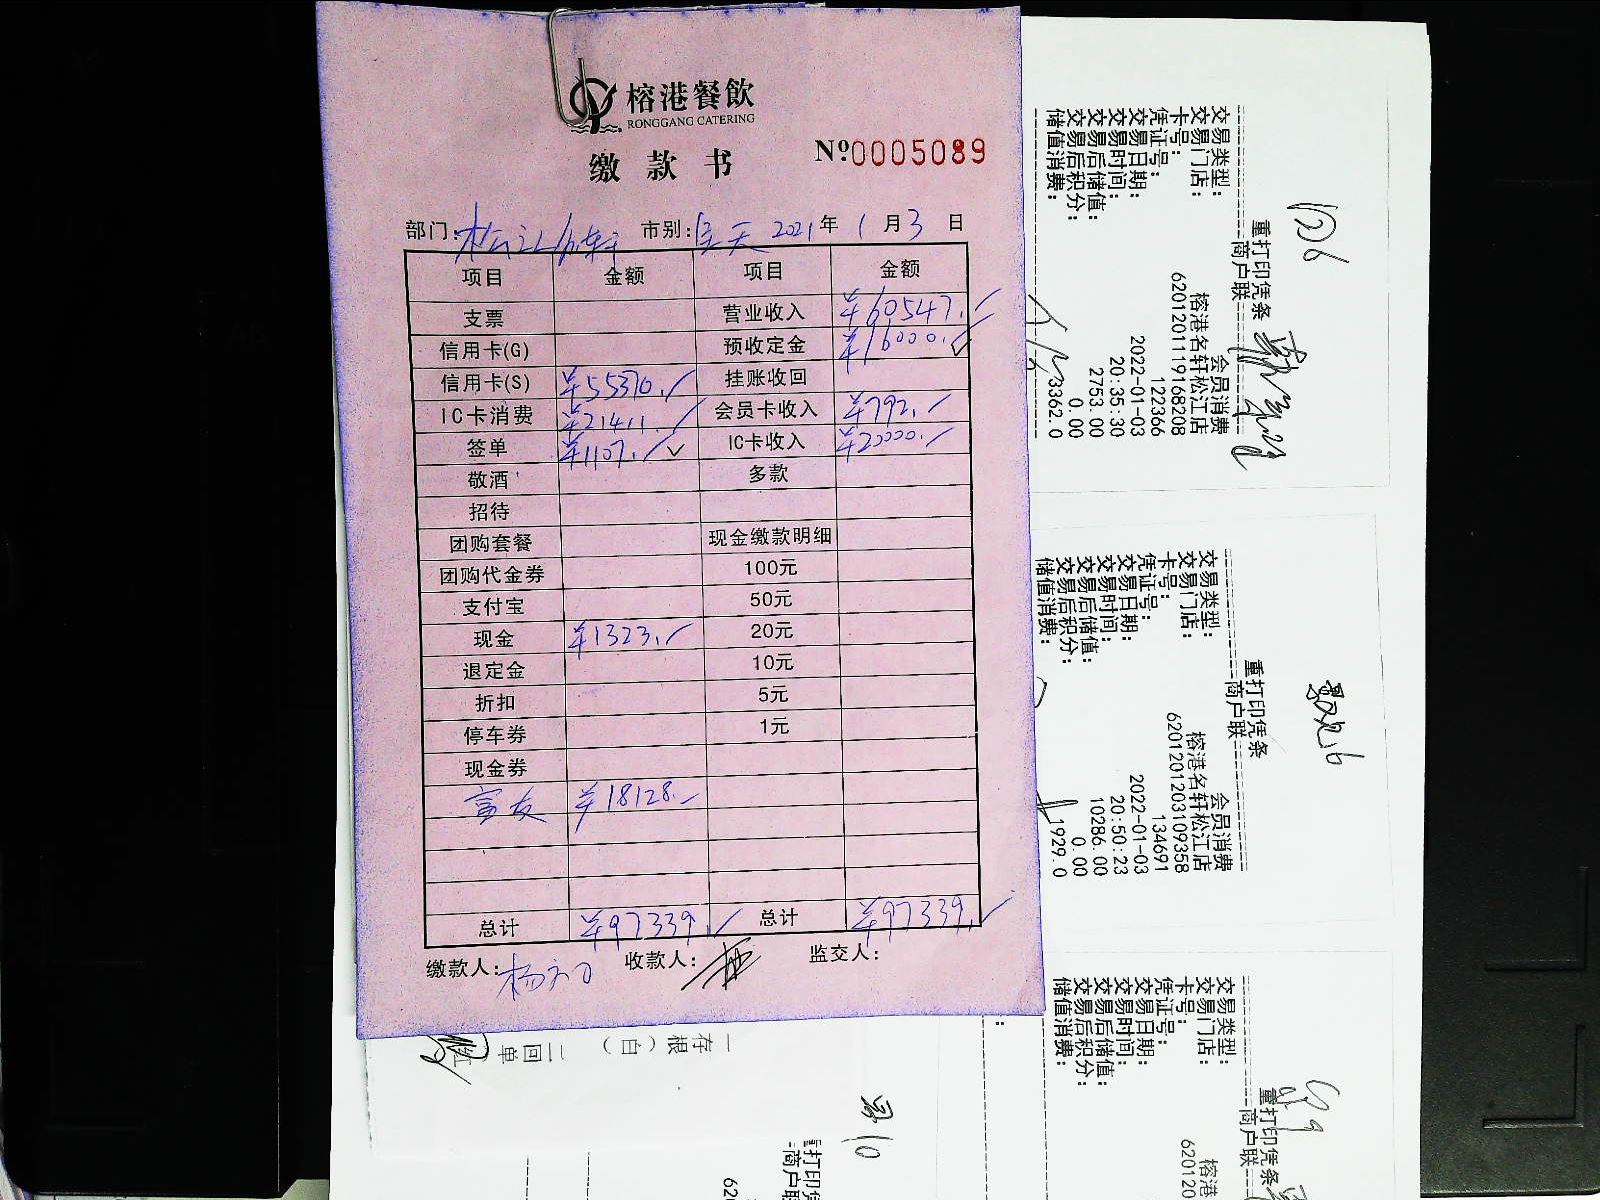 榕港餐飲
RONGGANG CATERING
缴款书 №0005089
部门: 松江名轩 市别: 全天 2021年 1月 3日
项目 金额 项目 金额
支票 营业收入 ¥60547.
信用卡(G) 预收定金 ¥16000.
信用卡(S) ¥55370. 挂账收回
IC卡消费 ¥21411. 会员卡收入 ¥792.
签单 ¥1107. IC卡收入 ¥20000.
敬酒 多款
招待
团购套餐 现金缴款明细
团购代金券 100元
支付宝 50元
现金 ¥1323. 20元
退定金 10元
折扣 5元
停车券 1元
现金券
富友 ¥18128.
总计 ¥97339. 总计 ¥97339.
缴款人: 收款人: 监交人:
一存根(白) 二回单
重打印凭条
商户联
交易类型: 会员消费
交易门店: 榕港名轩松江店
卡号: 6201201119168208
凭证号: 122366
交易日期: 2022-01-03
交易时间: 20:35:30
交易后储值: 2753.00
交易后积分: 0.00
储值消费: 3362.0
重打印凭条
商户联
交易类型: 会员消费
交易门店: 榕港名轩松江店
卡号: 6201201203109358
凭证号: 134691
交易日期: 2022-01-03
交易时间: 20:50:23
交易后储值: 10286.00
交易后积分: 0.00
储值消费: 1929.0
重打印凭条
商户联
交易类型:
交易门店: 榕港
卡号: 620120
凭证号:
交易日期:
交易时间:
交易后储值:
交易后积分:
储值消费:
重打印凭
商户联
620